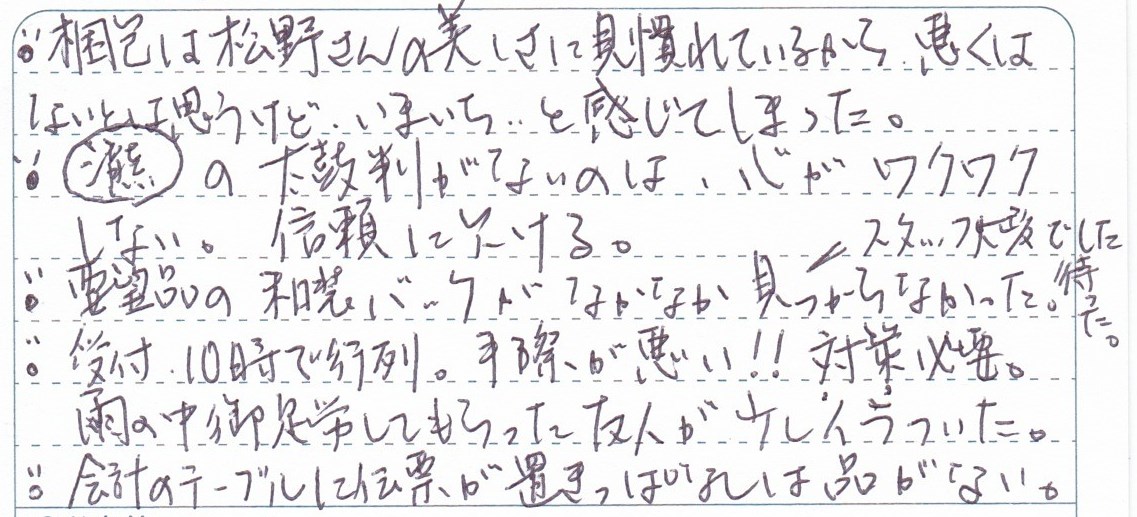 梱包は松野さんの美しさに見慣れているから悪くは
ないとは思うけど、いまいち‥と感じてしまった。
の太鼓判がでないのは、心がワクワク
しない。信頼に欠ける。
スタッフ大変でした
待った。
要望品の和装バックがなかなか見つからなかった。
受付.10時で行列。手際が悪い!!対策必要。
雨の中御足労してもらった友人が少しイラついた。
会計のテーブルに伝票が置きっぱなしは品がない。